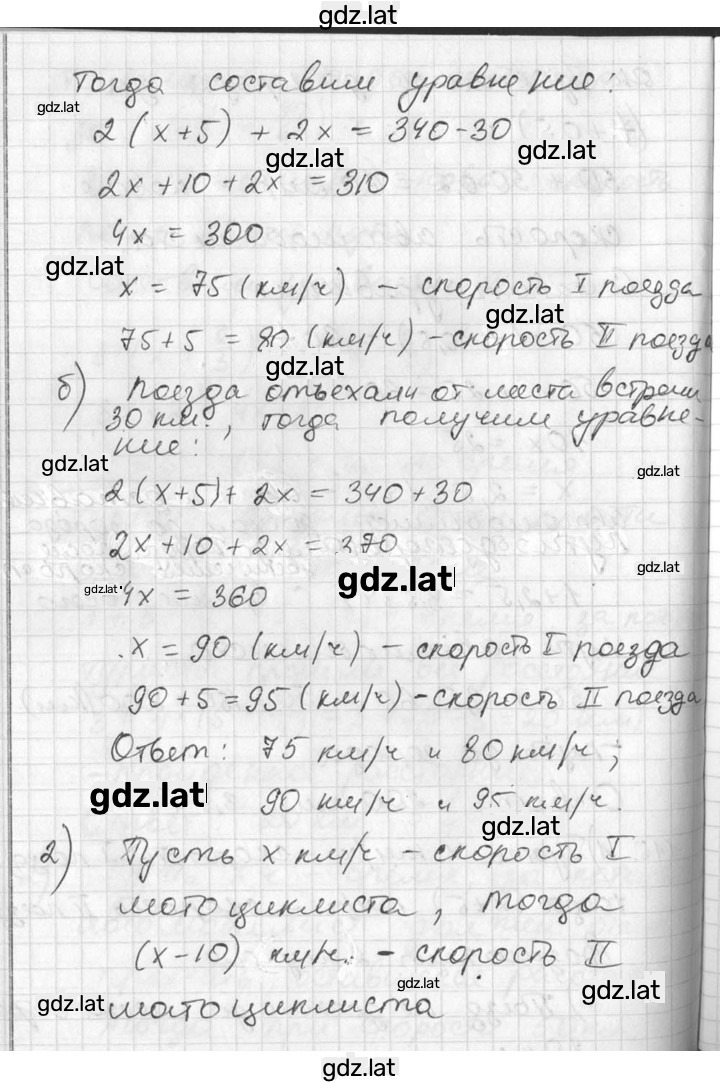 gdz.lat
Тогда составим уравнение:
gdz.lat
2(x+5) + 2x = 340-30
gdz.lat gdz.lat
2x+10+2x = 310
4x = 300
gdz.lat
x = 75 (км/ч) - скорость I поезда
gdz.lat
75+5 = 80 (км/ч) - скорость II поезда
gdz.lat
б) поезда отъехали от места встречи
30 км, тогда получим уравне-
ние:
gdz.lat gdz.lat
2(x+5)+2x = 340+30
2x+10+2x = 370
gdz.lat gdz.lat
gdz.lat 4x = 360
x = 90 (км/ч) - скорость I поезда
90+5=95 (км/ч) - скорость II поезда
Ответ: 75 км/ч и 80 км/ч;
gdz.lat 90 км/ч и 95 км/ч.
gdz.lat
2) Пусть x км/ч - скорость I
мотоциклиста, тогда
(x-10) км/ч - скорость II
gdz.lat gdz.lat
gdz.lat мотоциклиста
gdz.lat